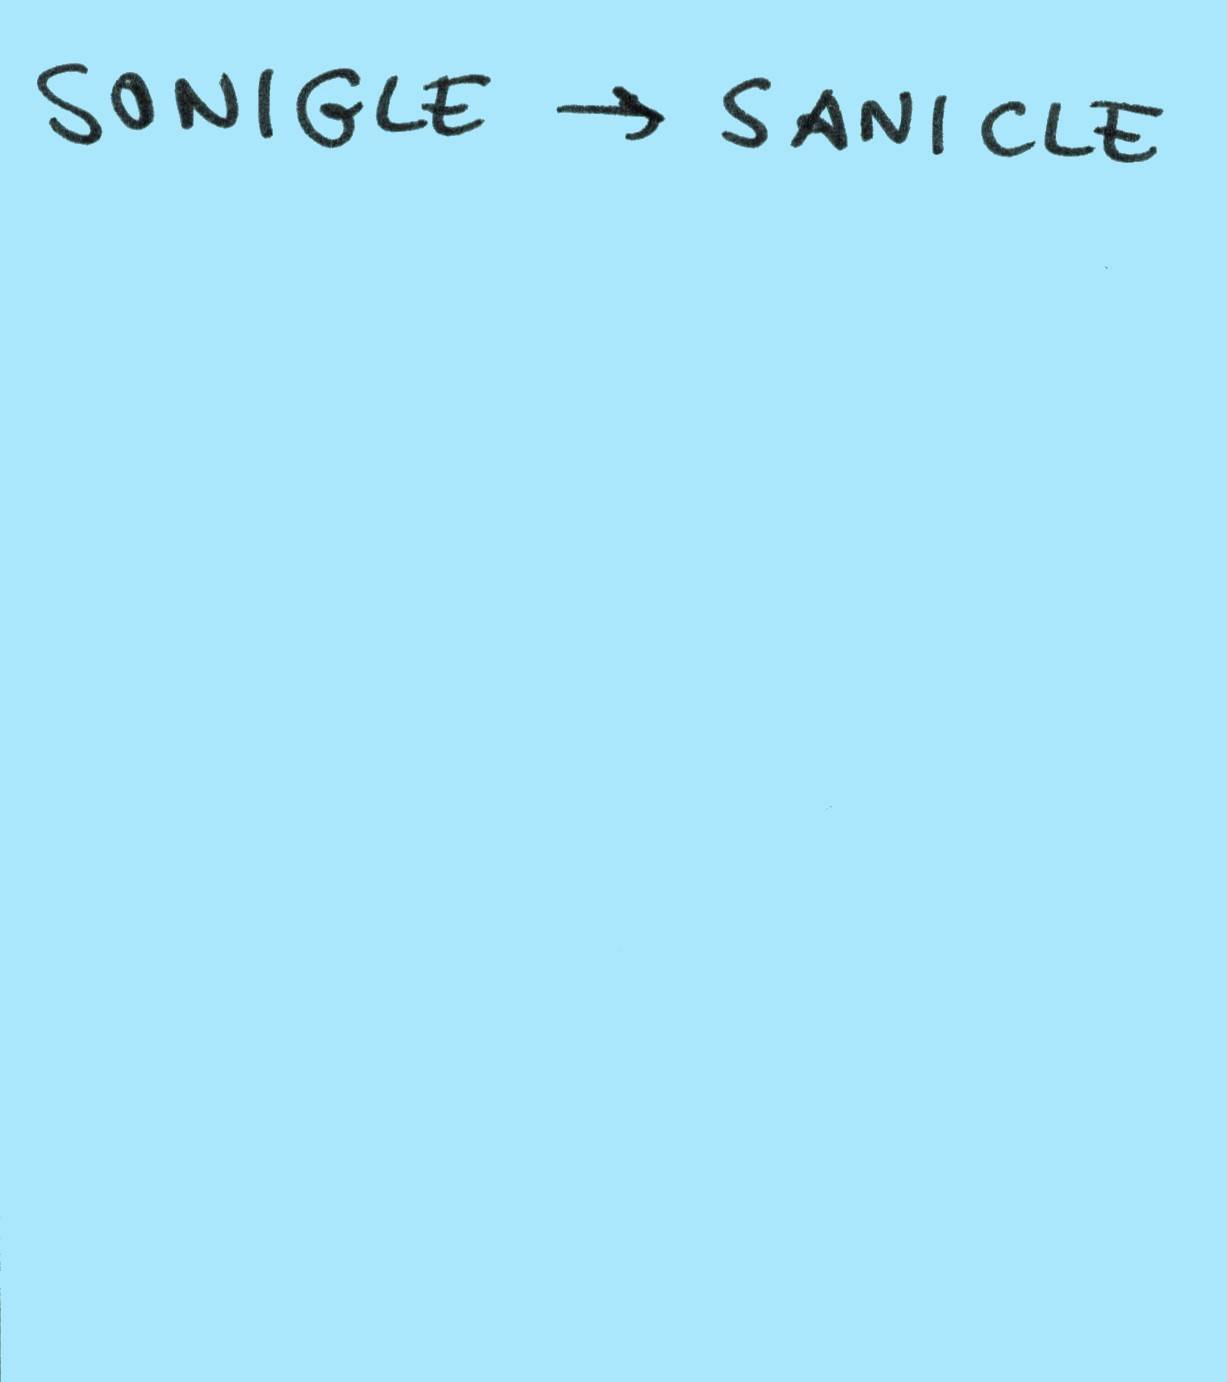 SONIGLE → SANICLE